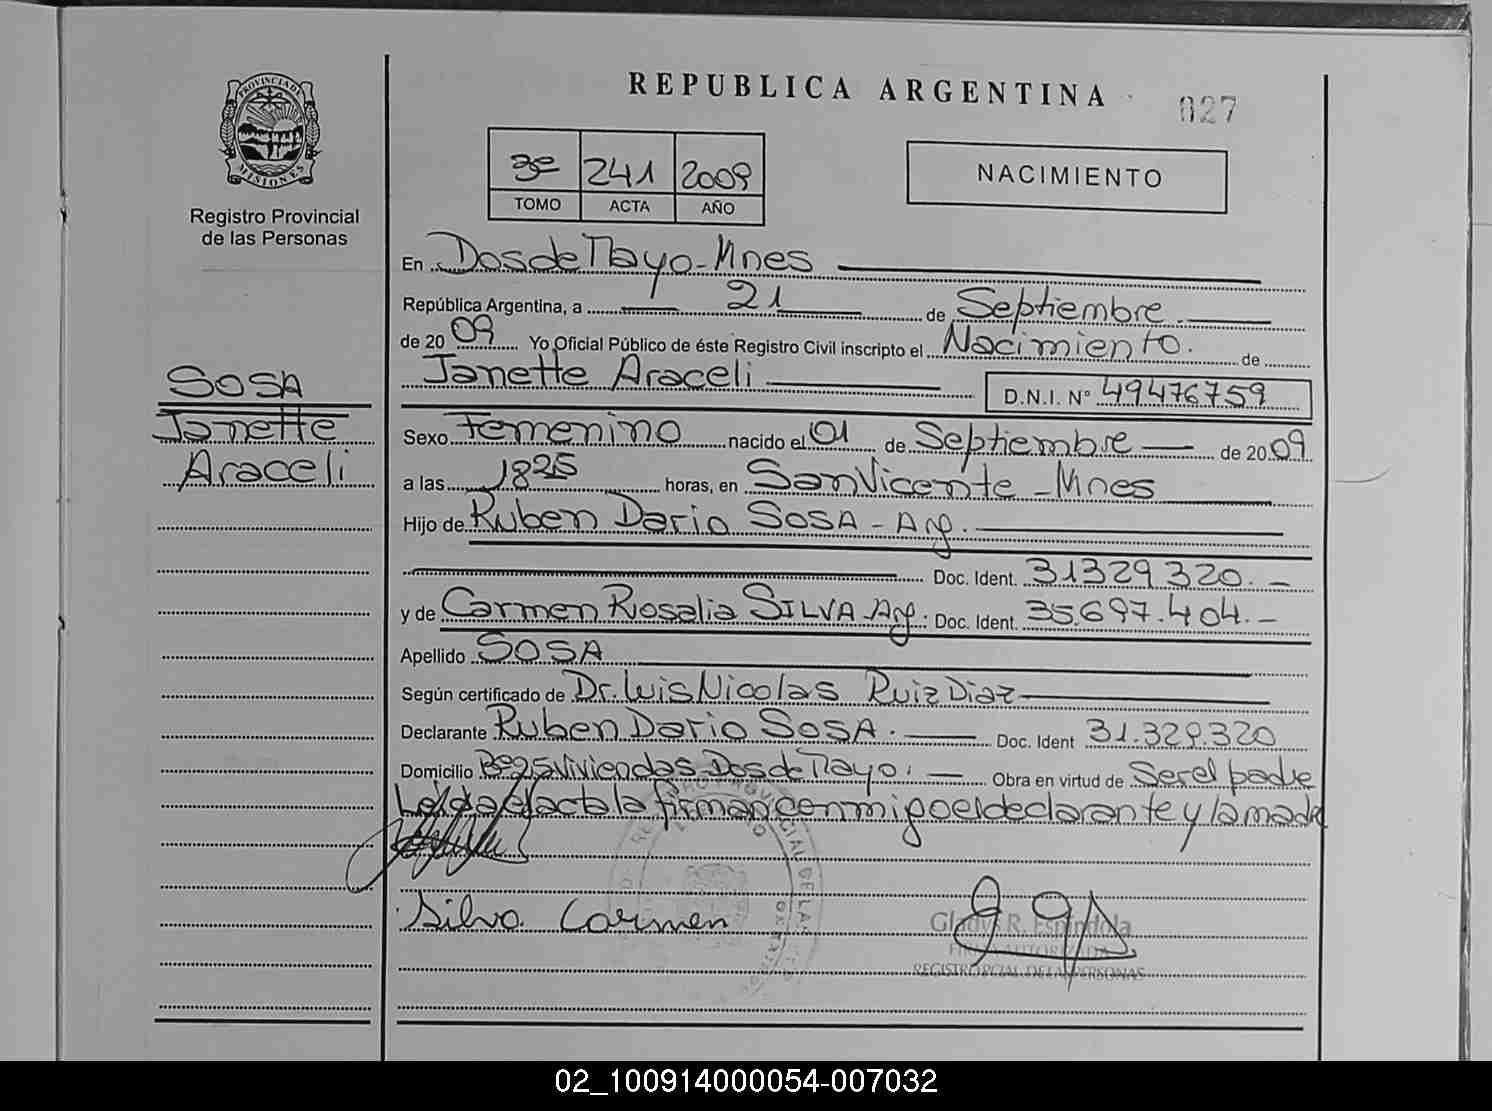 REPUBLICA ARGENTINA
027
PROVINCIA DE MISIONES
Registro Provincial
de las Personas
3º 241 2009
TOMO ACTA AÑO
NACIMIENTO
En Dos de Mayo - Mnes
República Argentina, a 21 de Septiembre
de 20 09 Yo Oficial Público de éste Registro Civil inscripto el Nacimiento. de
Janette Araceli D.N.I. Nº 49476759
SOSA
Janette
Araceli
Sexo Femenino nacido el 01 de Septiembre de 20 09
a las 1825 horas, en San Vicente - Mnes
Hijo de Ruben Dario SOSA - Arg.
Doc. Ident. 31329320. -
y de Carmen Rosalia SILVA Arg. Doc. Ident. 35.697.404. -
Apellido SOSA
Según certificado de Dr. Luis Nicolas Ruiz Diaz
Declarante Ruben Dario SOSA. Doc. Ident 31.329.320
Domicilio Bº 25 Viviendas Dos de Mayo. Obra en virtud de Ser el padre
Leida el acta la firman conmigo el declarante y la madre
Silva Carmen
Gladys R. Espindola
FIRMA AUTORIZADA
REGISTRO PCIAL. DE LAS PERSONAS
02_100914000054-007032